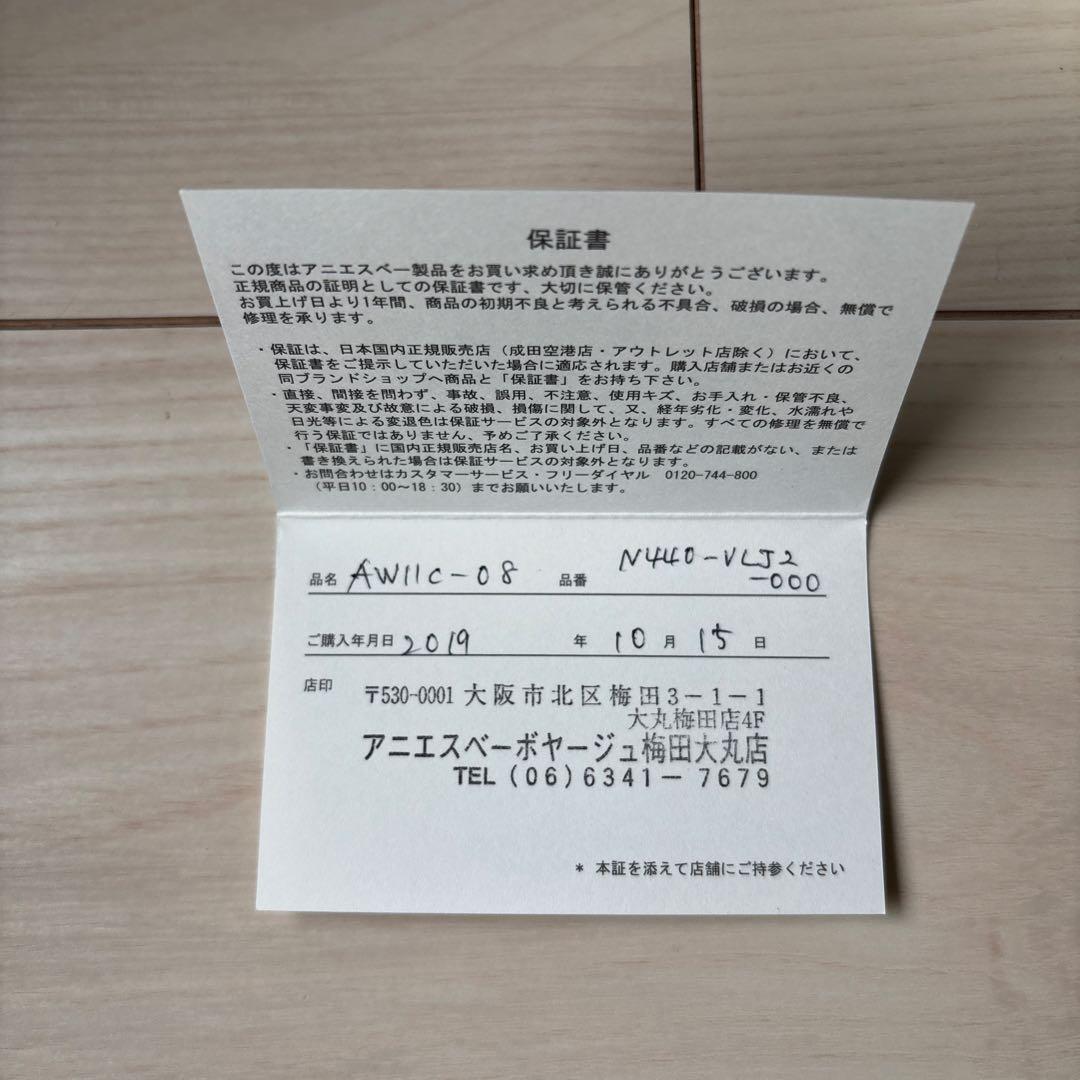 保証書
この度はアニエスベー製品をお買い求め頂き誠にありがとうございます。
正規商品の証明としての保証書です、大切に保管ください。
お買上げ日より1年間、商品の初期不良と考えられる不具合、破損の場合、無償で
修理を承ります。
・保証は、日本国内正規販売店（成田空港店・アウトレット店除く）において、
保証書をご提示していただいた場合に適応されます。購入店舗またはお近くの
同ブランドショップへ商品と「保証書」をお持ち下さい。
・直接、間接を問わず、事故、誤用、不注意、使用キズ、お手入れ・保管不良、
天変事変及び故意による破損、損傷に関して、又、経年劣化・変化、水濡れや
日光等による変退色は保証サービスの対象外となります。すべての修理を無償で
行う保証ではありません、予めご了承ください。
・「保証書」に国内正規販売店名、お買い上げ日、品番などの記載がない、または
書き換えられた場合は保証サービスの対象外となります。
・お問合わせはカスタマーサービス・フリーダイヤル 0120-744-800
（平日10：00〜18：30）までお願いいたします。
品名 AW11C-08 品番 N440-VLJ2
-000
ご購入年月日 2019 年 10 月 15 日
店印 〒530-0001 大阪市北区梅田3－1－1
大丸梅田店4F
アニエスベーボヤージュ梅田大丸店
TEL (06) 6341－7679
* 本証を添えて店舗にご持参ください